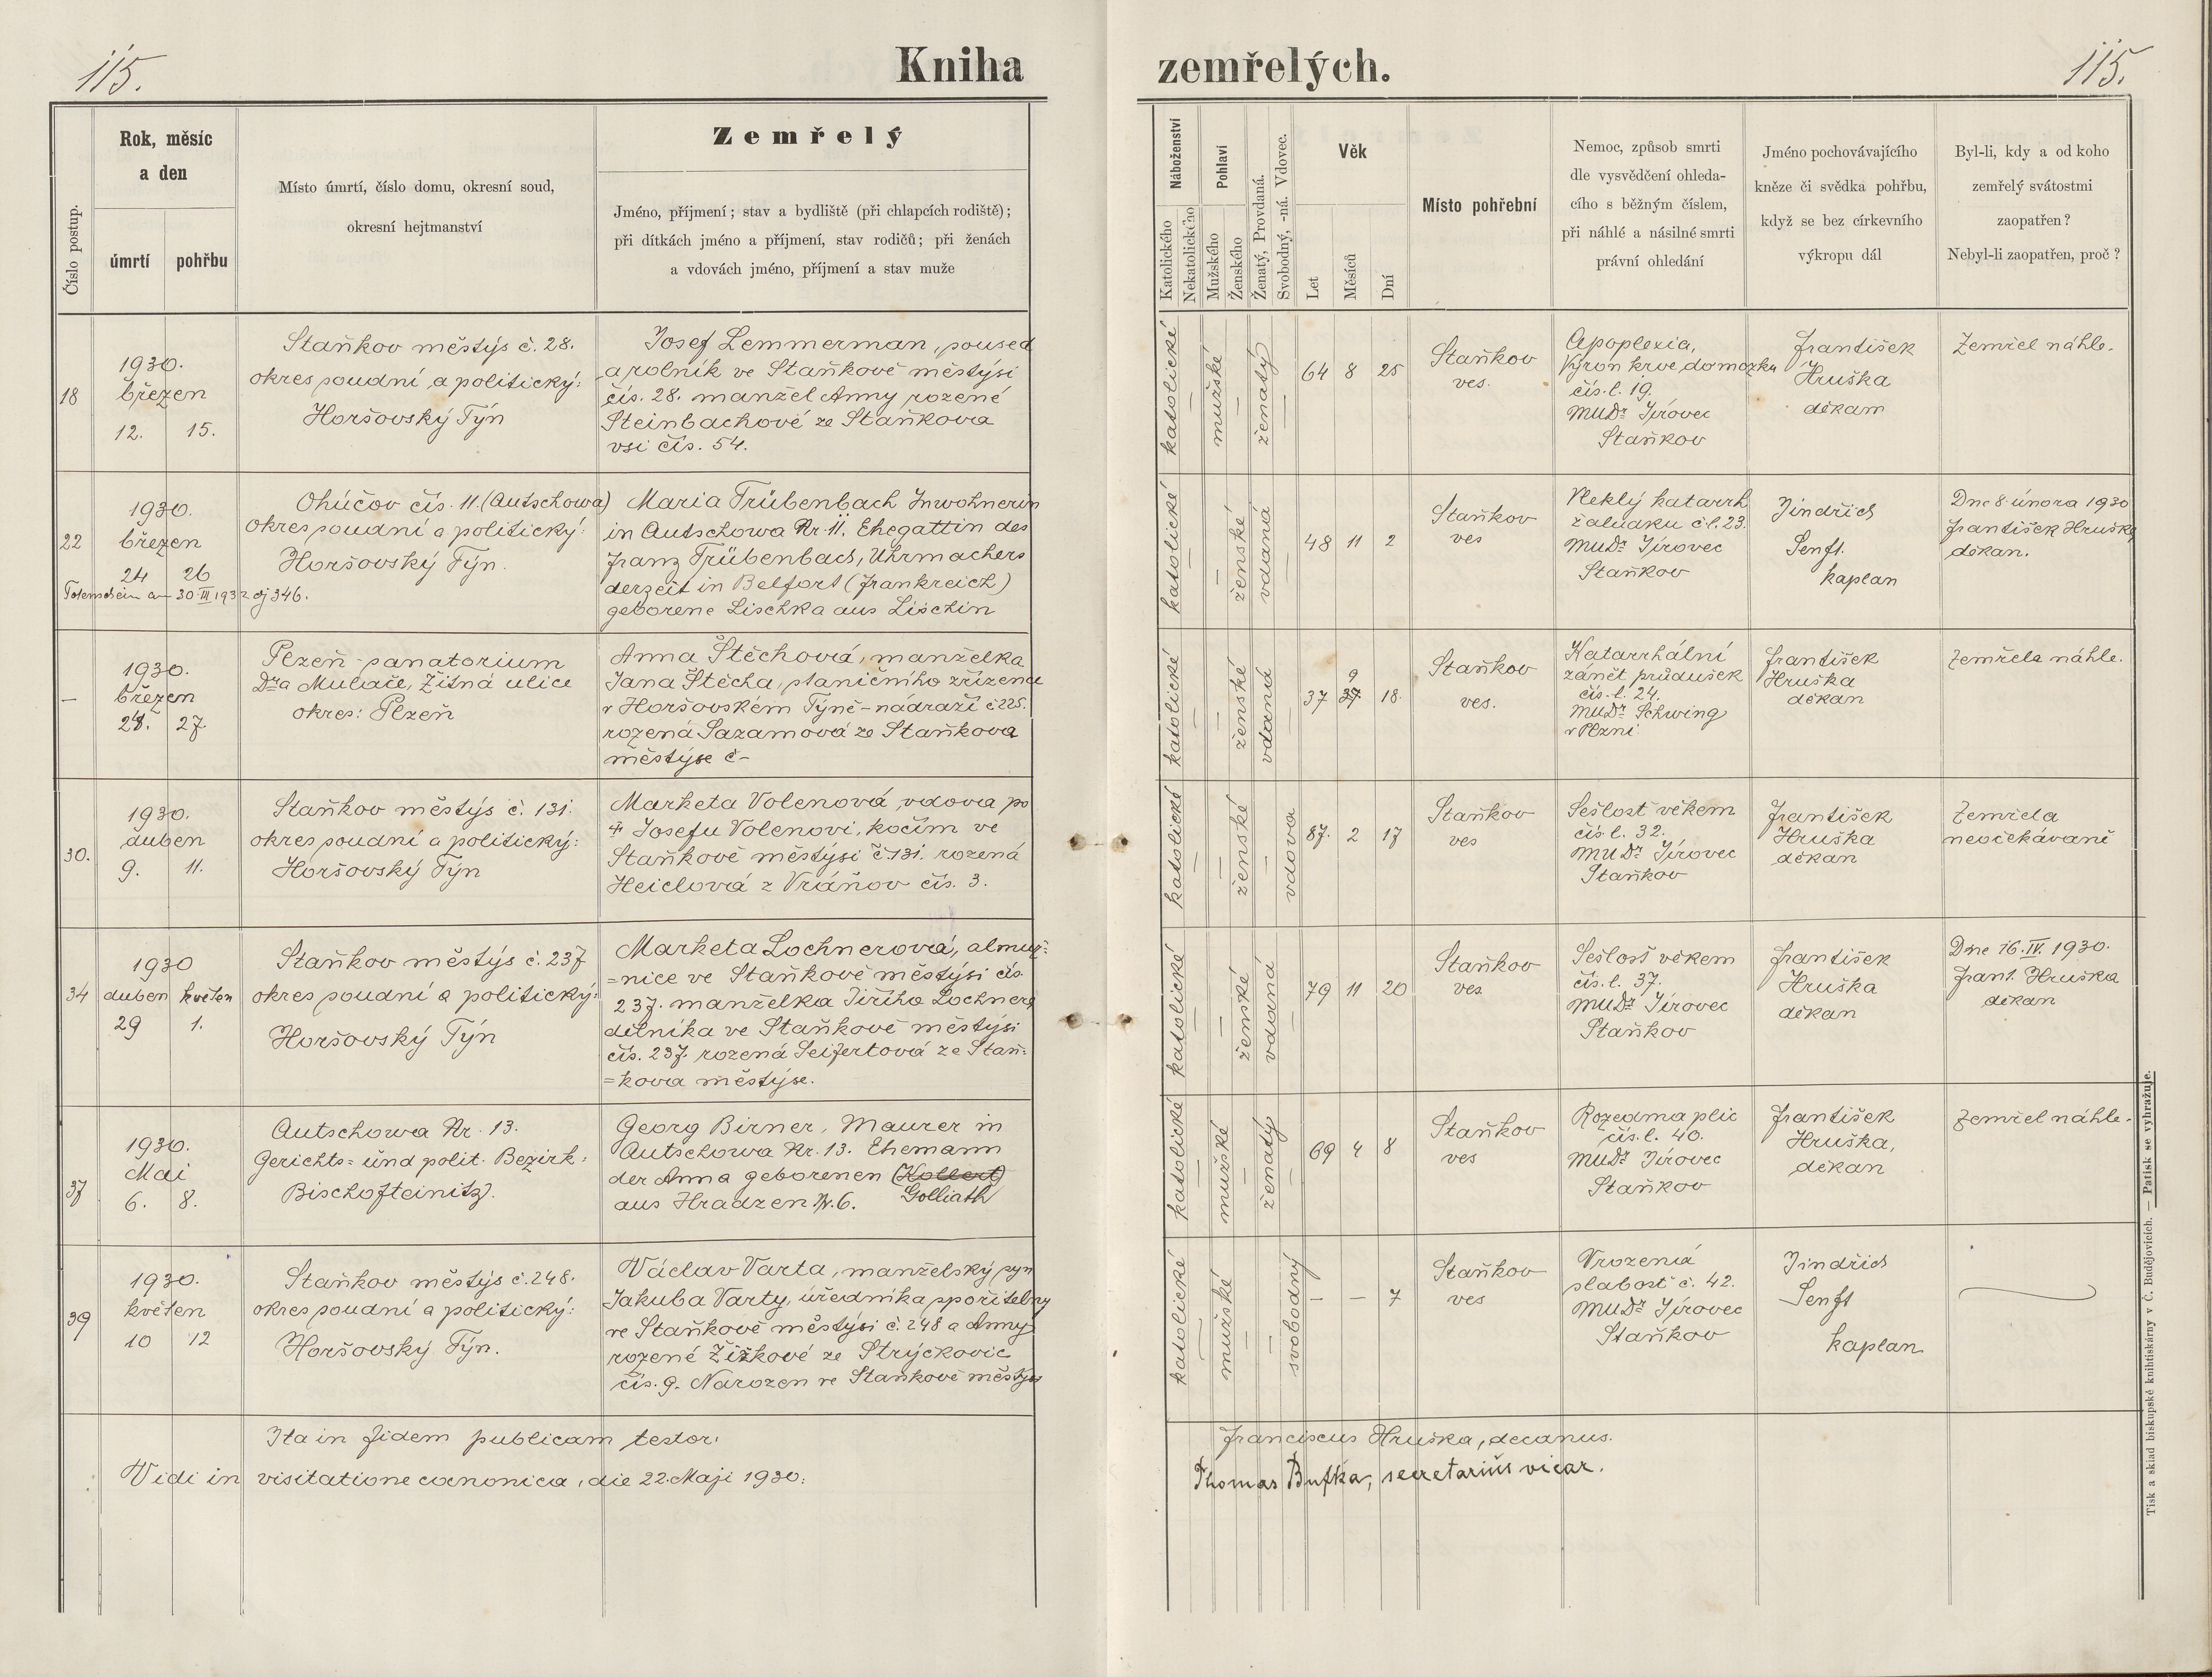 115.
Kniha zemřelých.
115.
Číslo postup.
Rok, měsíc
a den
úmrtí
pohřbu
Místo úmrtí, číslo domu, okresní soud,
okresní hejtmanství
Zemřelý
Jméno, příjmení; stav a bydliště (při chlapcích rodiště);
při dítkách jméno a příjmení, stav rodičů; při ženách
a vdovách jméno, příjmení a stav muže
Náboženství
Katolického
Nekatolického
Pohlaví
Mužského
Ženského
Ženatý, Provdaná.
Svobodný, -ná. Vdovec.
Věk
Let
Měsíců
Dní
Místo pohřební
Nemoc, způsob smrti
dle vysvědčení ohleda-
cího s běžným číslem,
při náhlé a násilné smrti
právní ohledání
Jméno pochovávajícího
kněze či svědka pohřbu,
když se bez církevního
výkropu dál
Byl-li, kdy a od koho
zemřelý svátostmi
zaopatřen?
Nebyl-li zaopatřen, proč?
18
1930.
březen
12. 15.
Staňkov městýs č. 28.
okres soudní a politický:
Horšovský Týn
Josef Lemmerman, soused
a rolník ve Staňkově městýsi
čís. 28. manžel Anny rozené
Steinbachové ze Staňkova
vsi čís. 54.
katolické
mužské
ženatý
64 8 25
Staňkov
ves.
Apoplexia,
Výron krve do mozku
čís. l. 19.
MUDr Jírovec
Staňkov
František
Hruška
děkan
Zemřel náhle.
22
1930.
březen
24 26
Totenschein am 30. III 1932 čj 346.
Ohúčov čís. 11. (Autschowa)
okres soudní a politický:
Horšovský Týn.
Maria Trübenbach Inwohnerin
in Autschowa Nr. 11. Ehegattin des
Franz Trübenbach, Uhrmachers
derzeit in Belfort (Frankreich)
geborene Lischka aus Lischin
katolické
ženské
vdaná
48 11 2
Staňkov
ves
Vleklý katarrh
žaludku č. l. 23.
MUDr Jírovec
Staňkov
Jindřich
Senft.
kaplan
Dne 8. února 1930
František Hruška,
děkan.
—
1930.
březen
24. 27
Plzeň - sanatorium
Dra Mulače, Žitná ulice
okres: Plzeň
Anna Štěchová, manželka
Jana Štěcha, staničního zřízence
v Horšovském Týně - nádraží č 225.
rozená Sazamová ze Staňkova
městýse č -
katolické
ženské
vdaná
9
37 37 18.
Staňkov
ves.
Katarrhální
zánět průdušek
čís. l. 24.
MUDr Schwing
v Plzni
František
Hruška
děkan
Zemřela náhle.
30.
1930.
duben
9. 11.
Staňkov městýs č. 131.
okres soudní a politický:
Horšovský Týn
Marketa Volenová, vdova po
‡ Josefu Volenovi, kočím ve
Staňkově městýsi č. 131. rozená
Heidlová z Vráňov čís. 3.
katolické
ženské
vdova
87. 2 17
Staňkov
ves
Sešlost věkem
čís l. 32.
MUDr Jírovec
Staňkov
František
Hruška
děkan
Zemřela
neočekávaně
34
1930
duben květen
29 1.
Staňkov městýs č. 237
okres soudní a politický:
Horšovský Týn
Marketa Lochnerová, almuž=
=nice ve Staňkově městýsi čís
237. manželka Jiřího Lochnera
dělníka ve Staňkově městýsi
čís. 237. rozená Seifertová ze Staň=
=kova městýse.
katolické
ženské
vdaná
79 11 20
Staňkov
ves
Sešlost věkem
čís. l. 37.
MUDr Jírovec
Staňkov
František
Hruška
děkan
Dne 16. IV. 1930.
Frant. Hruška
děkan
37
1930.
Mai
6. 8.
Autschowa Nr. 13.
Gerichts= und polit. Bezirk:
Bischofteinitz.
Georg Birner, Maurer in
Autschowa Nr. 13. Ehemann
der Anna geborenen (Kollert)
aus Hradzen Nr. 6. Golliath
katolické
mužské
ženatý
69 4 8
Staňkov
ves
Rozedma plic
čís. l. 40.
MUDr Jírovec
Staňkov
František
Hruška,
děkan
Zemřel náhle.
39
1930.
květen
10 12
Staňkov městýs č. 248.
okres soudní a politický:
Horšovský Týn.
Václav Varta, manželský syn
Jakuba Varty, úředníka spořitelny
ve Staňkově městýsi č. 248 a Anny
rozené Žižkové ze Strýčkovic
čís. 9. Narozen ve Staňkově městýsi
katolické
mužské
svobodný
— — 7
Staňkov
ves
Vrozená
slabost č. 42.
MUDr Jírovec
Staňkov
Jindřich
Senft
kaplan
Ita in fidem publicam testor: Franciscus Hruška, decanus.
Vidi in visitatione canonica, die 22. Maji 1930: Thomas Bufka, secretariüs vicar.
Tisk a sklad biskupské knihtiskárny v Č. Budějovicích. — Patisk se vyhražuje.